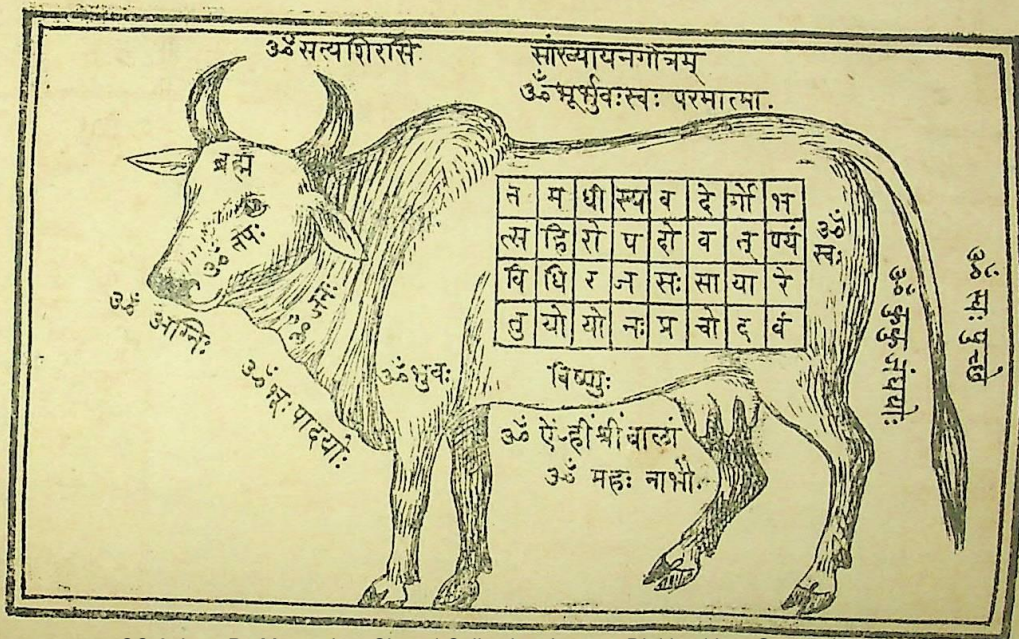 ॐ सत्यशिरसि
सांख्यायनगोत्रम्
ॐ भूर्भुवःस्वः परमात्मा.
ब्रह्म
ॐ तपः
ॐ जनः
ॐ अग्निः
ॐ भूः पादयोः
ॐ भुवः
त म धी स्य व दे र्गो भ
त्स हि रो प हो व तृ ण्यं
वि धि र ज सः सा या रे
तु यो यो नः प्र चो द वं
ॐ स्वः
विष्णुः
ॐ ऐं ह्रीं श्रीं बालां
ॐ महः नाभौ.
ॐ
ॐ स्वः पुच्छे